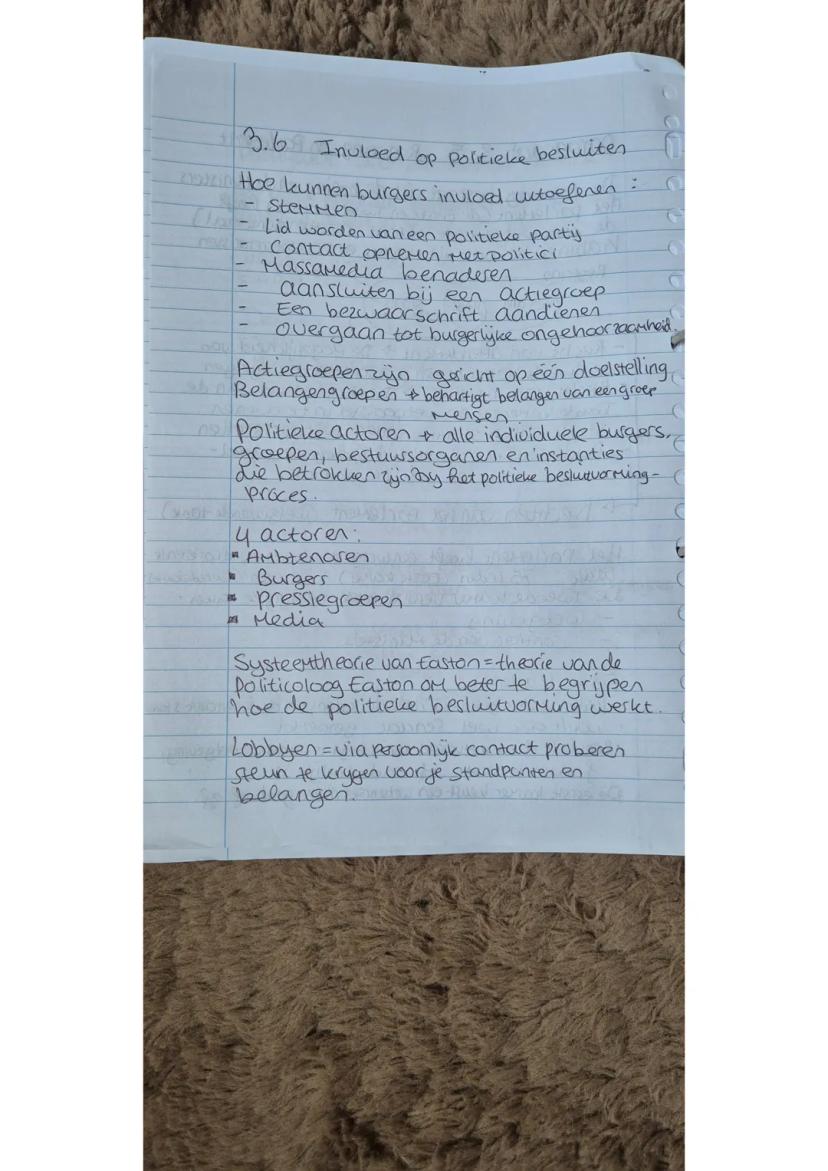 3.6 Invloed op politieke besluiten
Hoe kunnen burgers invloed uitoefenen :
- Stemmen
- Lid worden van een politieke partij
- Contact opnemen met politici
- Massamedia benaderen
- aansluiten bij een actiegroep
- Een bezwaarschrift aandienen
- overgaan tot burgerlijke ongehoorzaamheid.
Actiegroepen zijn gericht op één doelstelling
Belangengroepen → behartigt belangen van een groep
mensen
Politieke actoren → alle individuele burgers,
groepen, bestuursorganen en instanties
die betrokken zijn bij het politieke besluitvorming-
proces.
4 actoren:
▪ Ambtenaren
▪ Burgers
▪ pressiegroepen
▪ Media
Systeemtheorie van Easton = theorie van de
politicoloog Easton om beter te begrijpen
hoe de politieke besluitvorming werkt.
Lobbyen = via persoonlijk contact proberen
steun te krijgen voor je standpunten en
belangen.